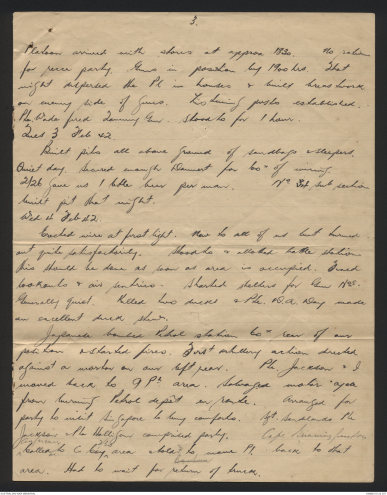 3.
Platoon arrived with stores at approx 1830. No rations
for recce party. Guns in position by 1900 hrs. That
night dispersed the Pl. in houses & built breastwork
on enemy side of guns. Listening posts established.
Pte. fired Tommy Gun. Stood to for 1 hour.
Tues 3 Feb 42.
Built pits all above ground of sandbags & sleepers.
Quiet day. Secured enough Dannert for 60ˣ of wiring
2/26 gave us 1 bottle beer per man. Nº 3 sub section
built pit that night.
Wed 4 Feb 42.
Erected wire at first light. New to all of us but turned
out quite satisfactorily. Stood to & allotted battle stations
this should be done as soon as area is occupied.
lookouts & air sentries. Started shelters for Gun Nos.
Generally quiet. Killed two ducks & Pte. Day made
an excellent duck stew.
Japanese bombed Petrol station 60ˣ rear of our
position & started fires. First artillery action directed
against a mortar on our left rear. Pte. Jackson & I
moved back to 9 Pl. area. Salvaged motor tyres
from burning Petrol depot en route. Arranged for
party to visit Singapore to buy comforts. Sgt. Pte
Jackson & Pte comprised party.
Called to C Coy. area & told to move Pl. back to that
area. Had to wait for return of truck.